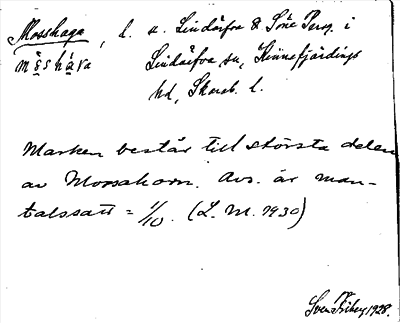 Mosshaga, l. u. Lindärfva & Söne Persg. i
måshåva Lindärfva sn, Kinnefjärdings
hd, Skarab. l.
Marken består till största delen
av Mossahorn. Avs. är man-
talssatt = 1/10. (L. M. 1930)
Sven Friberg 1928.